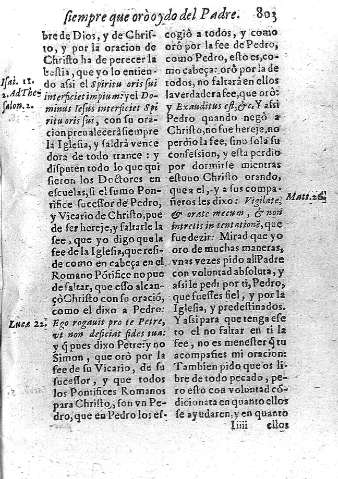 siempre que orò oydo del Padre. 803
bre de Dios, y de Chris-
to, y por la oracion de
Christo ha de perecer la
bestia, que yo lo entien-
do assi el Spiritu oris sui
interficiet impium: y el Do-
minus Iesus interficiet Spi
ritu oris sui, con su oracion
prevalecerá siempre
la Iglesia, y saldrà vence
dora de todo trance: y
disputen todo lo que qui
sieren los Doctores en
escuelas, si el sumo Pon-
tifice sucessor de Pedro,
y Vicario de Christo, pue
de ser hereje, y faltarle la
fee, que yo digo que la
fee de la Iglesia, que resi-
de como en cabeça en el
Romano Põtifice no pue
de faltar, que esso alcan-
çò Christo con su oraciõ,
como el dixo a Pedro:
Ego rogavit pro te Petre,
vt non deficiat fides tua:
y q̃ pues dixo Petre: y no
Simon, que orò por la
fee de su Vicario, de su
sucessor, y que todos
los Pontifices Romanos
para Christo, son vn Pe-
dro, que en Pedro los es-
Isai. 11.
2. Ad Thes
salon. 2.
Lucæ 22.
cogiò a todos, y como
orò por la fee de Pedro,
como Pedro, esto es, co-
mo cabeça: orò por la de
todos, no faltarà en ellos
la verdadera fee, que orò:
y Exauditus est, &c. Y assi
Pedro quando negò a
Christo, no fue hereje, no
perdio la fee, sino sola su
confession, y esta perdiò
por dormirse mientras
estuvo Christo orando,
que a el, y a sus compa-
ñeros les dixo: Vigilate,
& orate mecum, & non
intretis in tentationẽ, que
fue dezir: Mirad que yo
oro de muchas maneras,
vnas vezes pido al Padre
con voluntad absoluta, y
assi le pedi por ti, Pedro,
que fuesses fiel, y por la
Iglesia, y predestinados.
Y assi para que tenga ese
to el no faltar en ti la
fee, no es menester q̃ tu
acompañes mi oracion:
Tambien pido que os li-
bre de todo pecado, pe-
ro esto con voluntad cõ-
dicionata en quanto ellos
se ayudaren, y en quanto
Matt. 26.
Iiiii ellos